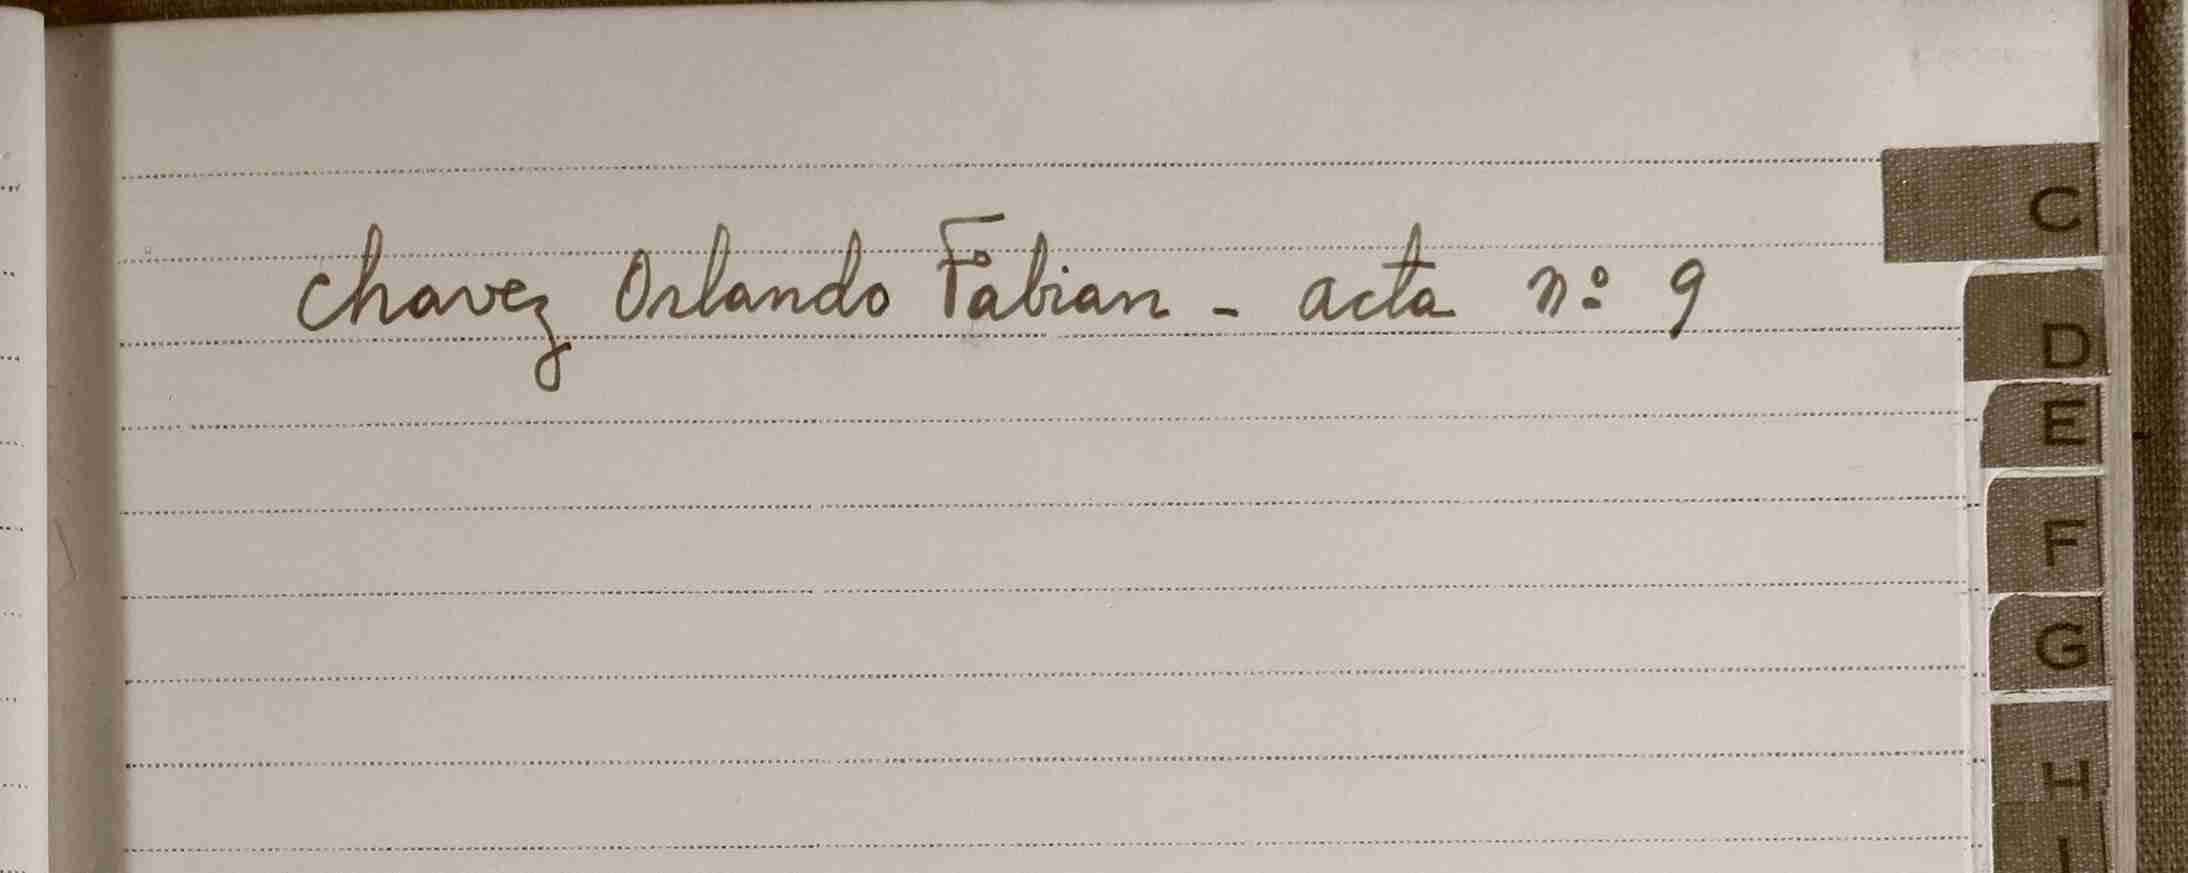 Chavez Orlando Fabian - acta nº 9
C
D
E
F
G
H
I